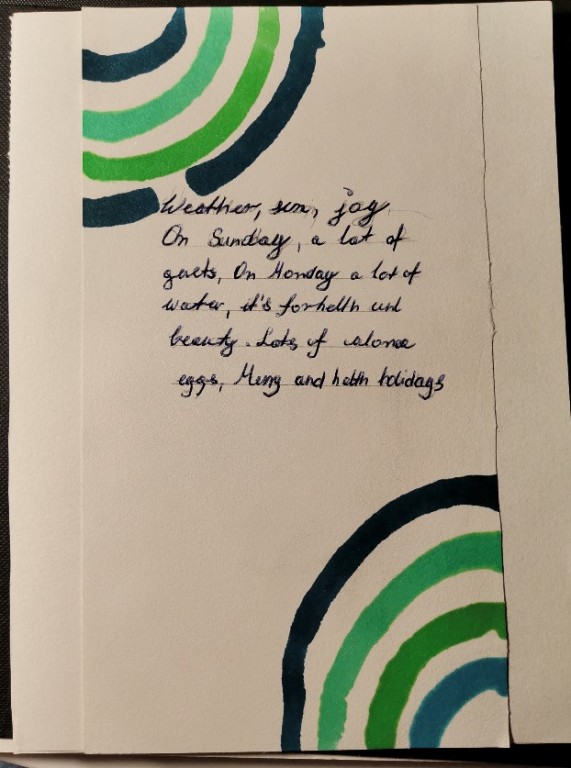 Weather, sun, joy
On Sunday, a lot of
guets, On Monday a lot of
water, it's for helth and
beauty. Lots of
eggs, Merry and helth holidays